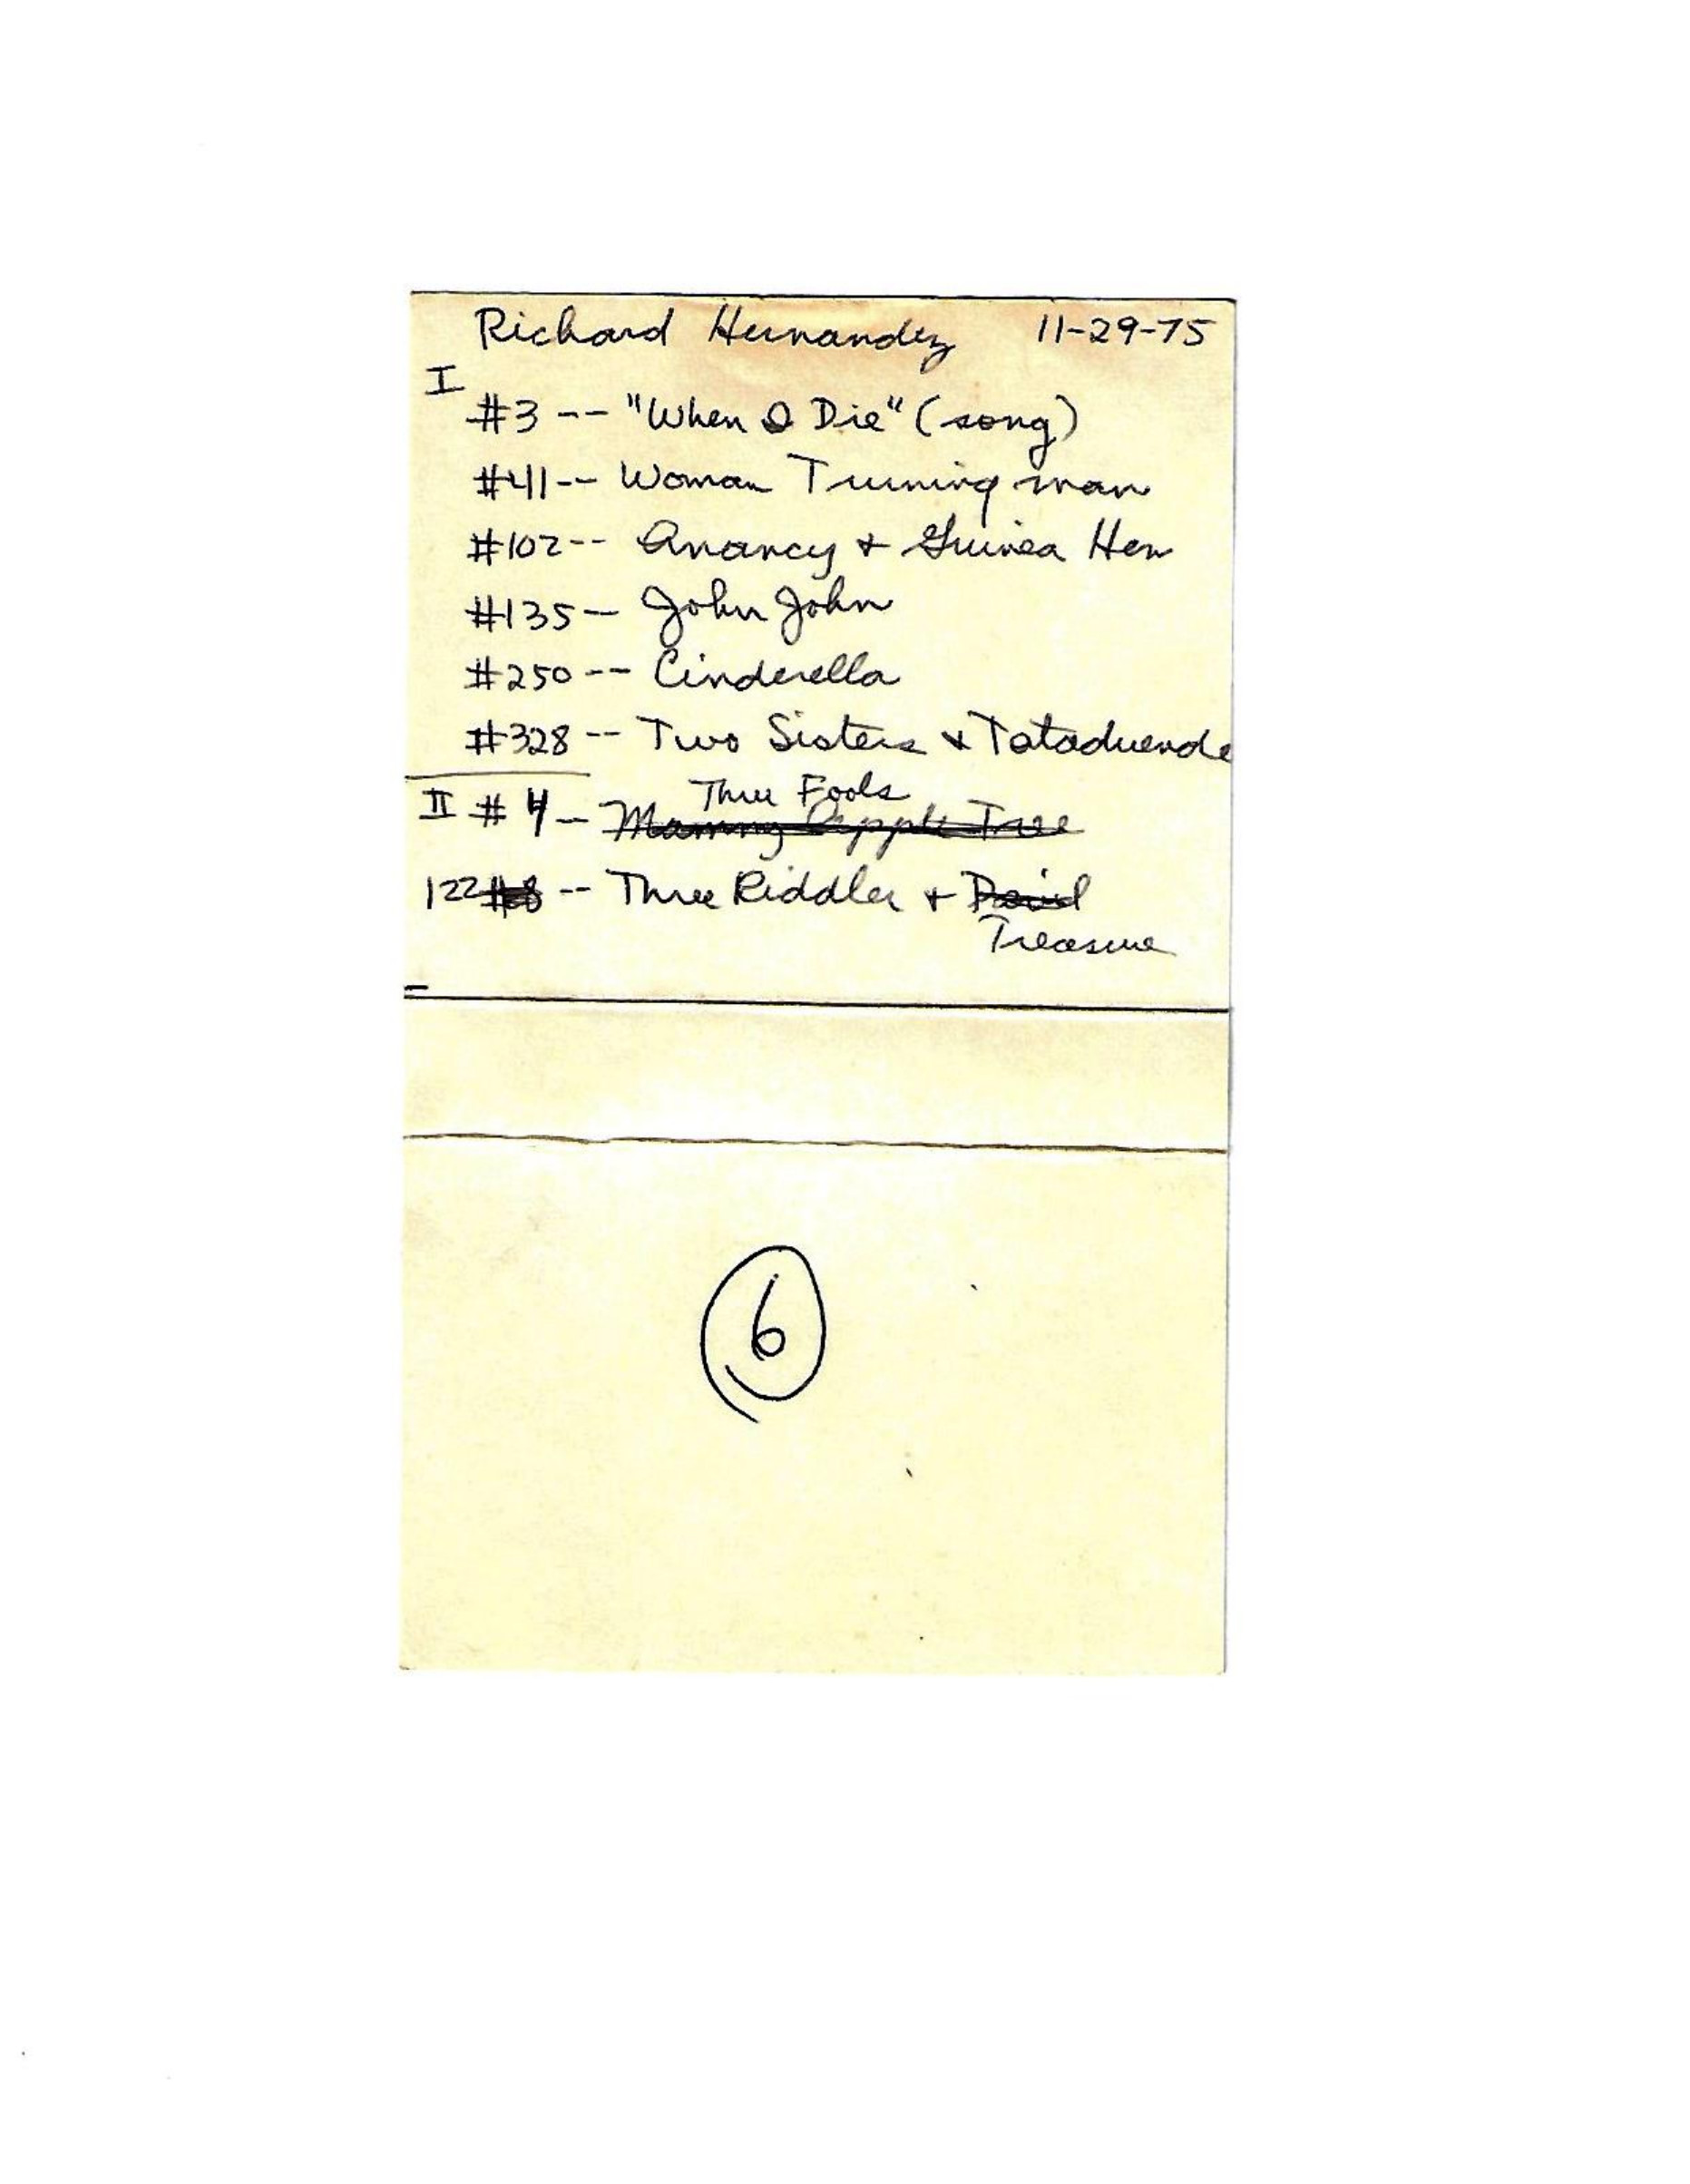 Richard Hernandez 11-29-75
I
#3 -- "When I Die" (song)
#41-- Woman Turning man
#102-- Anancy + Guinea Hen
#135- John John
#250 -- Cinderella
#328 -- Two Sisters + Tataduende
Three Fools
II # 4 - Mammy Apple Tree
122 #8 -- Three Riddler + David
Treasure
6